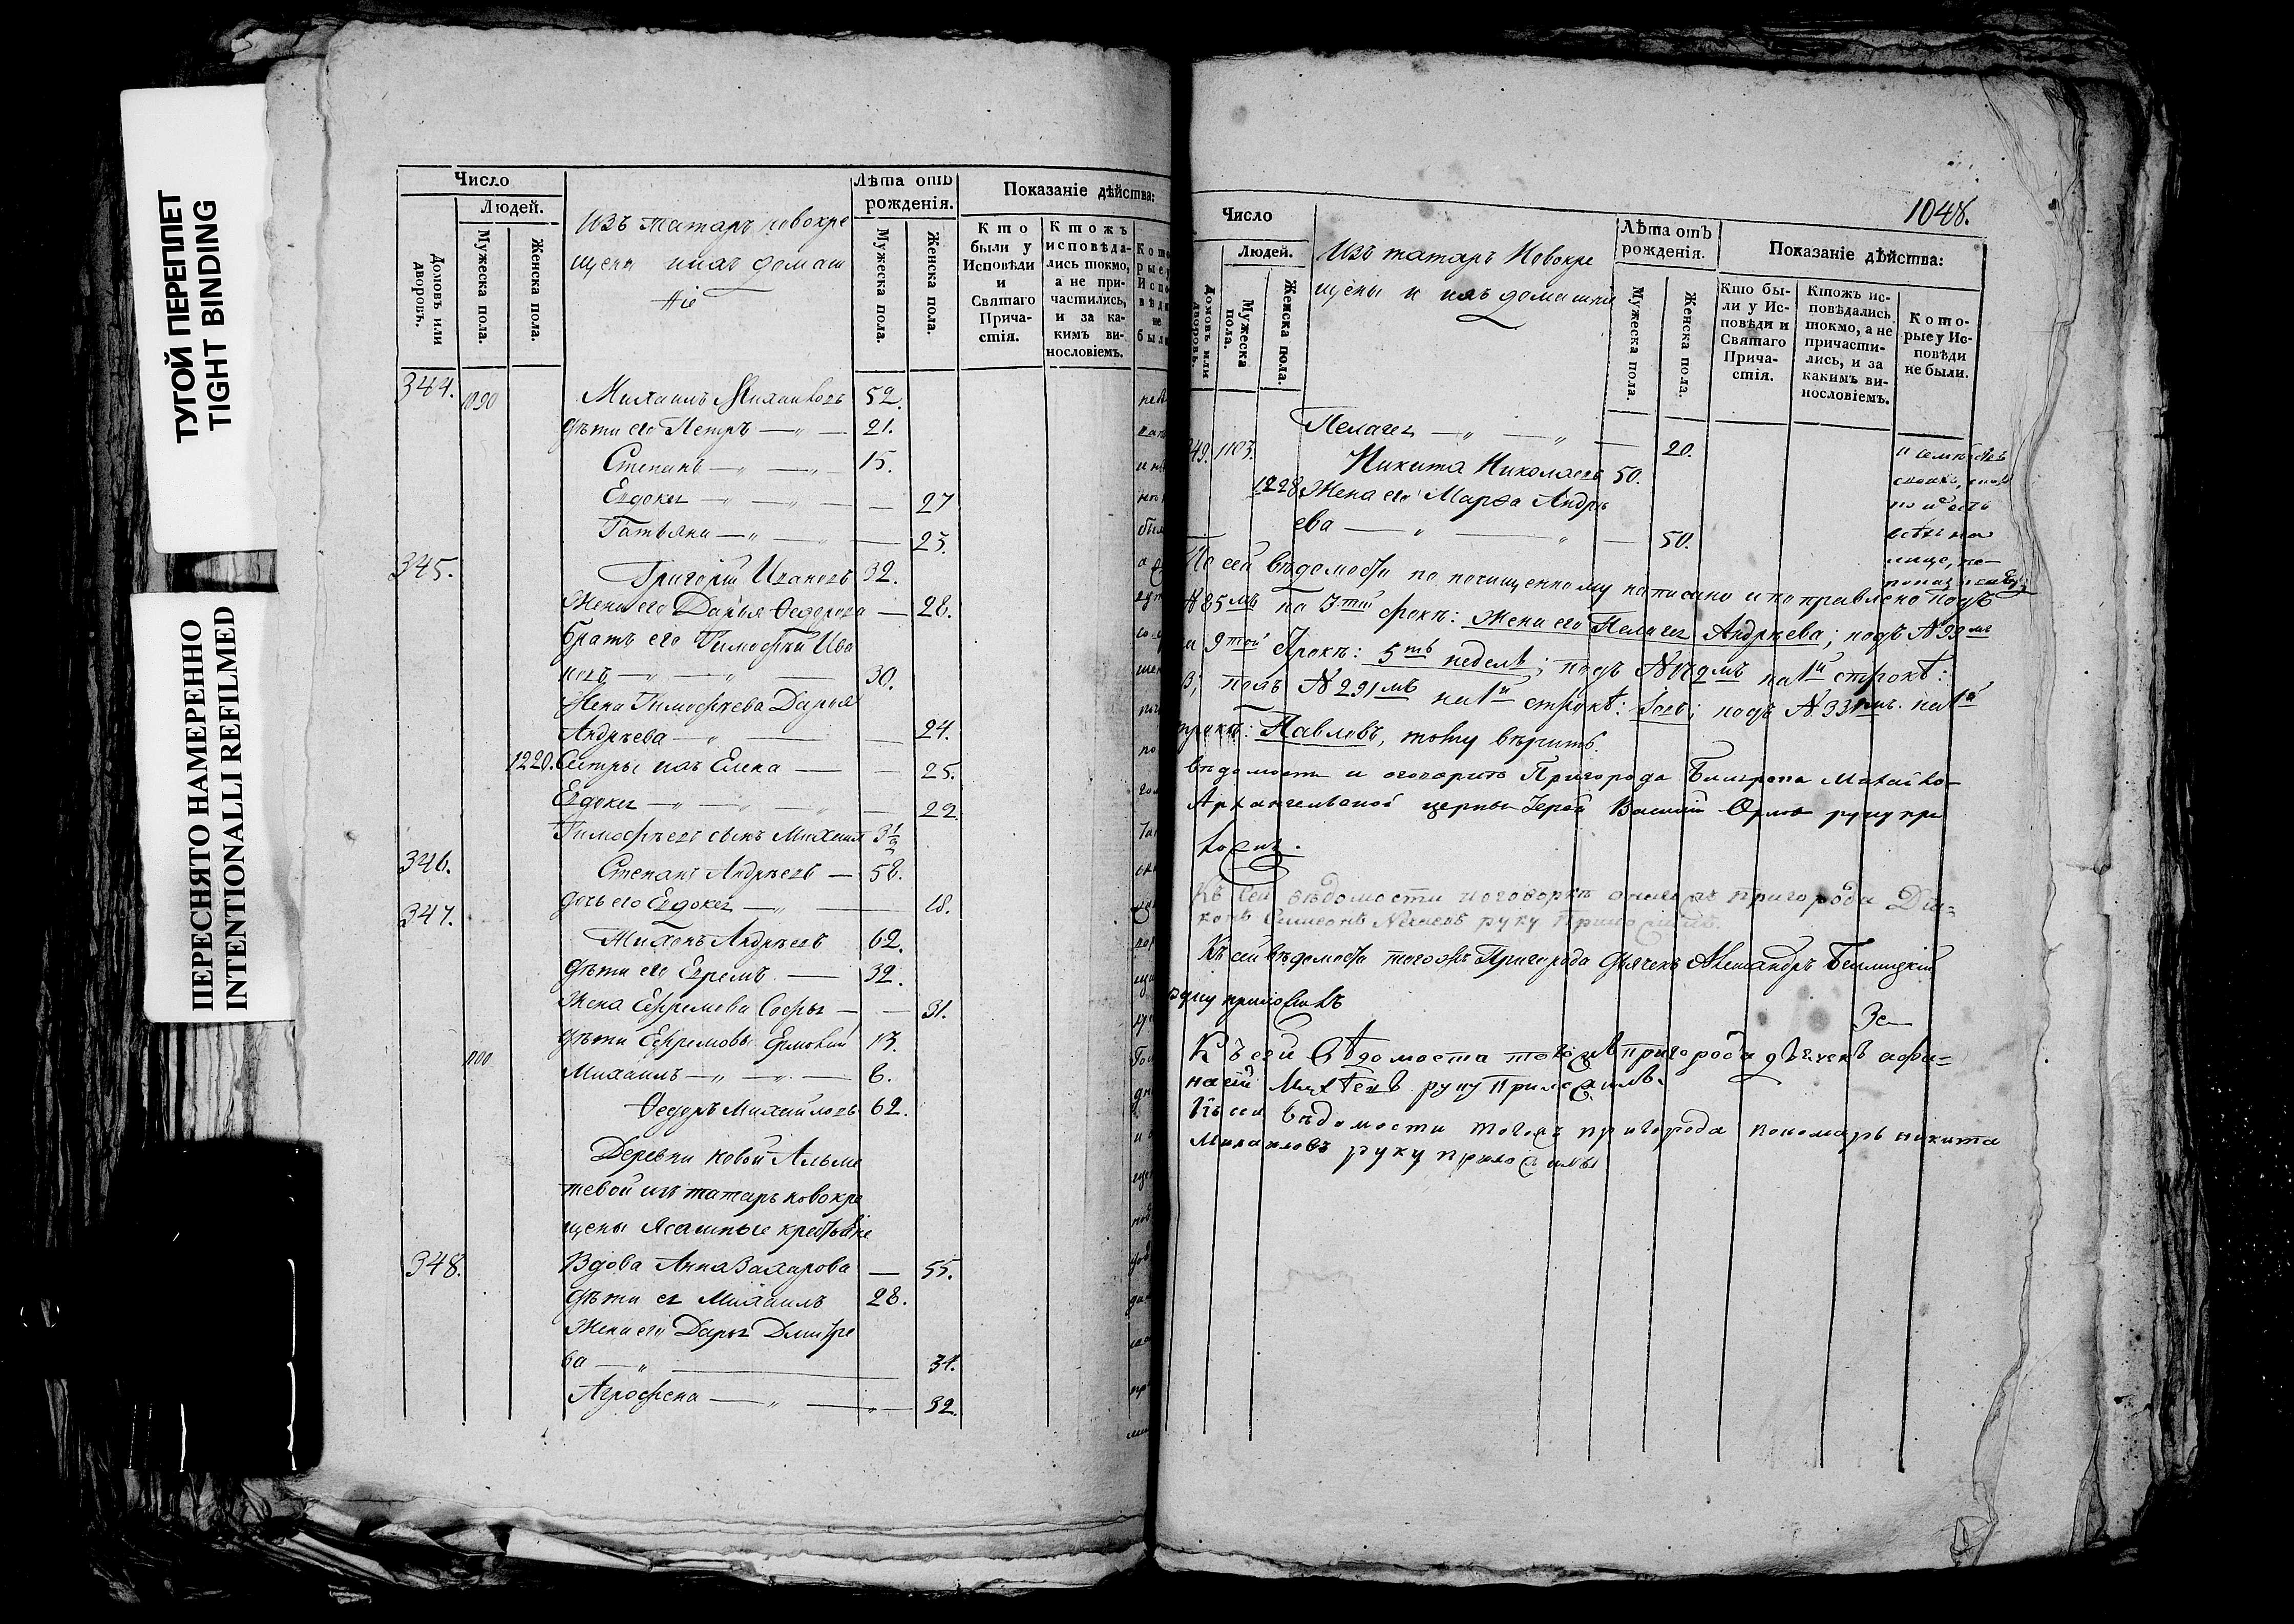 ТУГОЙ ПЕРЕПЛЕТ
TIGHT BINDING
ПЕРЕСНЯТО НАМЕРЕННО
INTENTIONALLI REFILMED
Число
Людей.
Домовъ или дворовъ.
Мужеска пола.
Женска пола.
Изъ татаръ новокре
щены и ихъ домаш
ніе
Лѣта отъ
рожденія.
Мужеска пола.
Женска пола.
Показаніе дѣйства:
Кто
были у
Исповѣди
и
Святаго
Прича-
стія.
Ктожъ
исповѣда-
лись токмо,
а не при-
частились,
и за ка-
кимъ ви-
нословіемъ.
344. 1090 Михаилъ Михайловъ 52.
дѣти его Петръ — „ — 21.
Степанъ — „ — „ — 15.
Евдокея — „ — „ — 27
Татьяна — „ — „ — 25.
345. Григорій Ивановъ 32.
Жена его Дарья Федорова — 28.
братъ его Тимофѣй Ива
новъ — „ — „ — 30.
Жена Тимофѣева Дарья
Андрѣева — „ — 24.
1220. Сестры ихъ Елена — 25.
Евдокея — „ — „ — 22
Тимофѣевъ сынъ Михаил 3 1/2
346. Степанъ Андрѣевъ — 58.
дочь его Евдокея — „ — 18.
347. Тихонъ Андрѣевъ 62.
дѣти его Ефремъ — 32.
Жена Ефремова Софья — 31.
дѣти Ефремовы Ермолай 13.
1100 Михаилъ — „ — „ — 6.
Федоръ Михайловъ 62.
Деревни новой Альме
тевой изъ татаръ новокре
щены Ясашные крестьяне
348. Вдова Анна Захарова — 55.
дѣти ея Михаилъ 28.
Жена его Дарья Дмитре
ва — „ — 34.
Агрофена — „ — „ — 32.
1048.
Число
Людей.
Домовъ или дворовъ.
Мужеска пола.
Женска пола.
Изъ татаръ Новокре
щены и ихъ домашніе
Лѣта отъ
рожденія.
Мужеска пола.
Женска пола.
Показаніе дѣйства:
Кто бы-
ли у Ис-
повѣди и
Святаго
Прича-
стія.
Ктожъ ис-
повѣдались
токмо, а не
причасти-
лись, и за
какимъ ви-
нословіемъ.
Кото-
рые у Ис-
повѣди
не были.
Пелагея — „ — „ — 20.
349. 1103. Никита Николаевъ 50.
1228 Жена его Марфа Андрѣ
ева — „ — „ — 50.
По сей вѣдомости по почищенному написано и поправлено подъ
№ 85мъ на 7той строкѣ: Жена его Пелагея Андрѣева; подъ № 99мъ
на 9той строкѣ: 5ть недель; подъ на 1й строкѣ:
подъ № 291мъ на 1й строкѣ: подъ № на 1й
строкѣ: Павловъ, тому вѣрить.
вѣдомости и оговорить Пригорода Билярска Михайло-
Архангельской церкви Іерей Василій Орловъ руку при
ложилъ.
Къ сей вѣдомости и оговоркѣ онагожъ пригорода Дья-
конъ руку приложилъ.
Къ сей вѣдомости тогожъ Пригорода дьячекъ Александръ
руку приложилъ
Къ сей вѣдомости тогожъ пригорода дьячекъ афа-
насій руку приложилъ.
Къ сей вѣдомости тогожъ пригорода пономарь никита
Михайловъ руку приложилъ